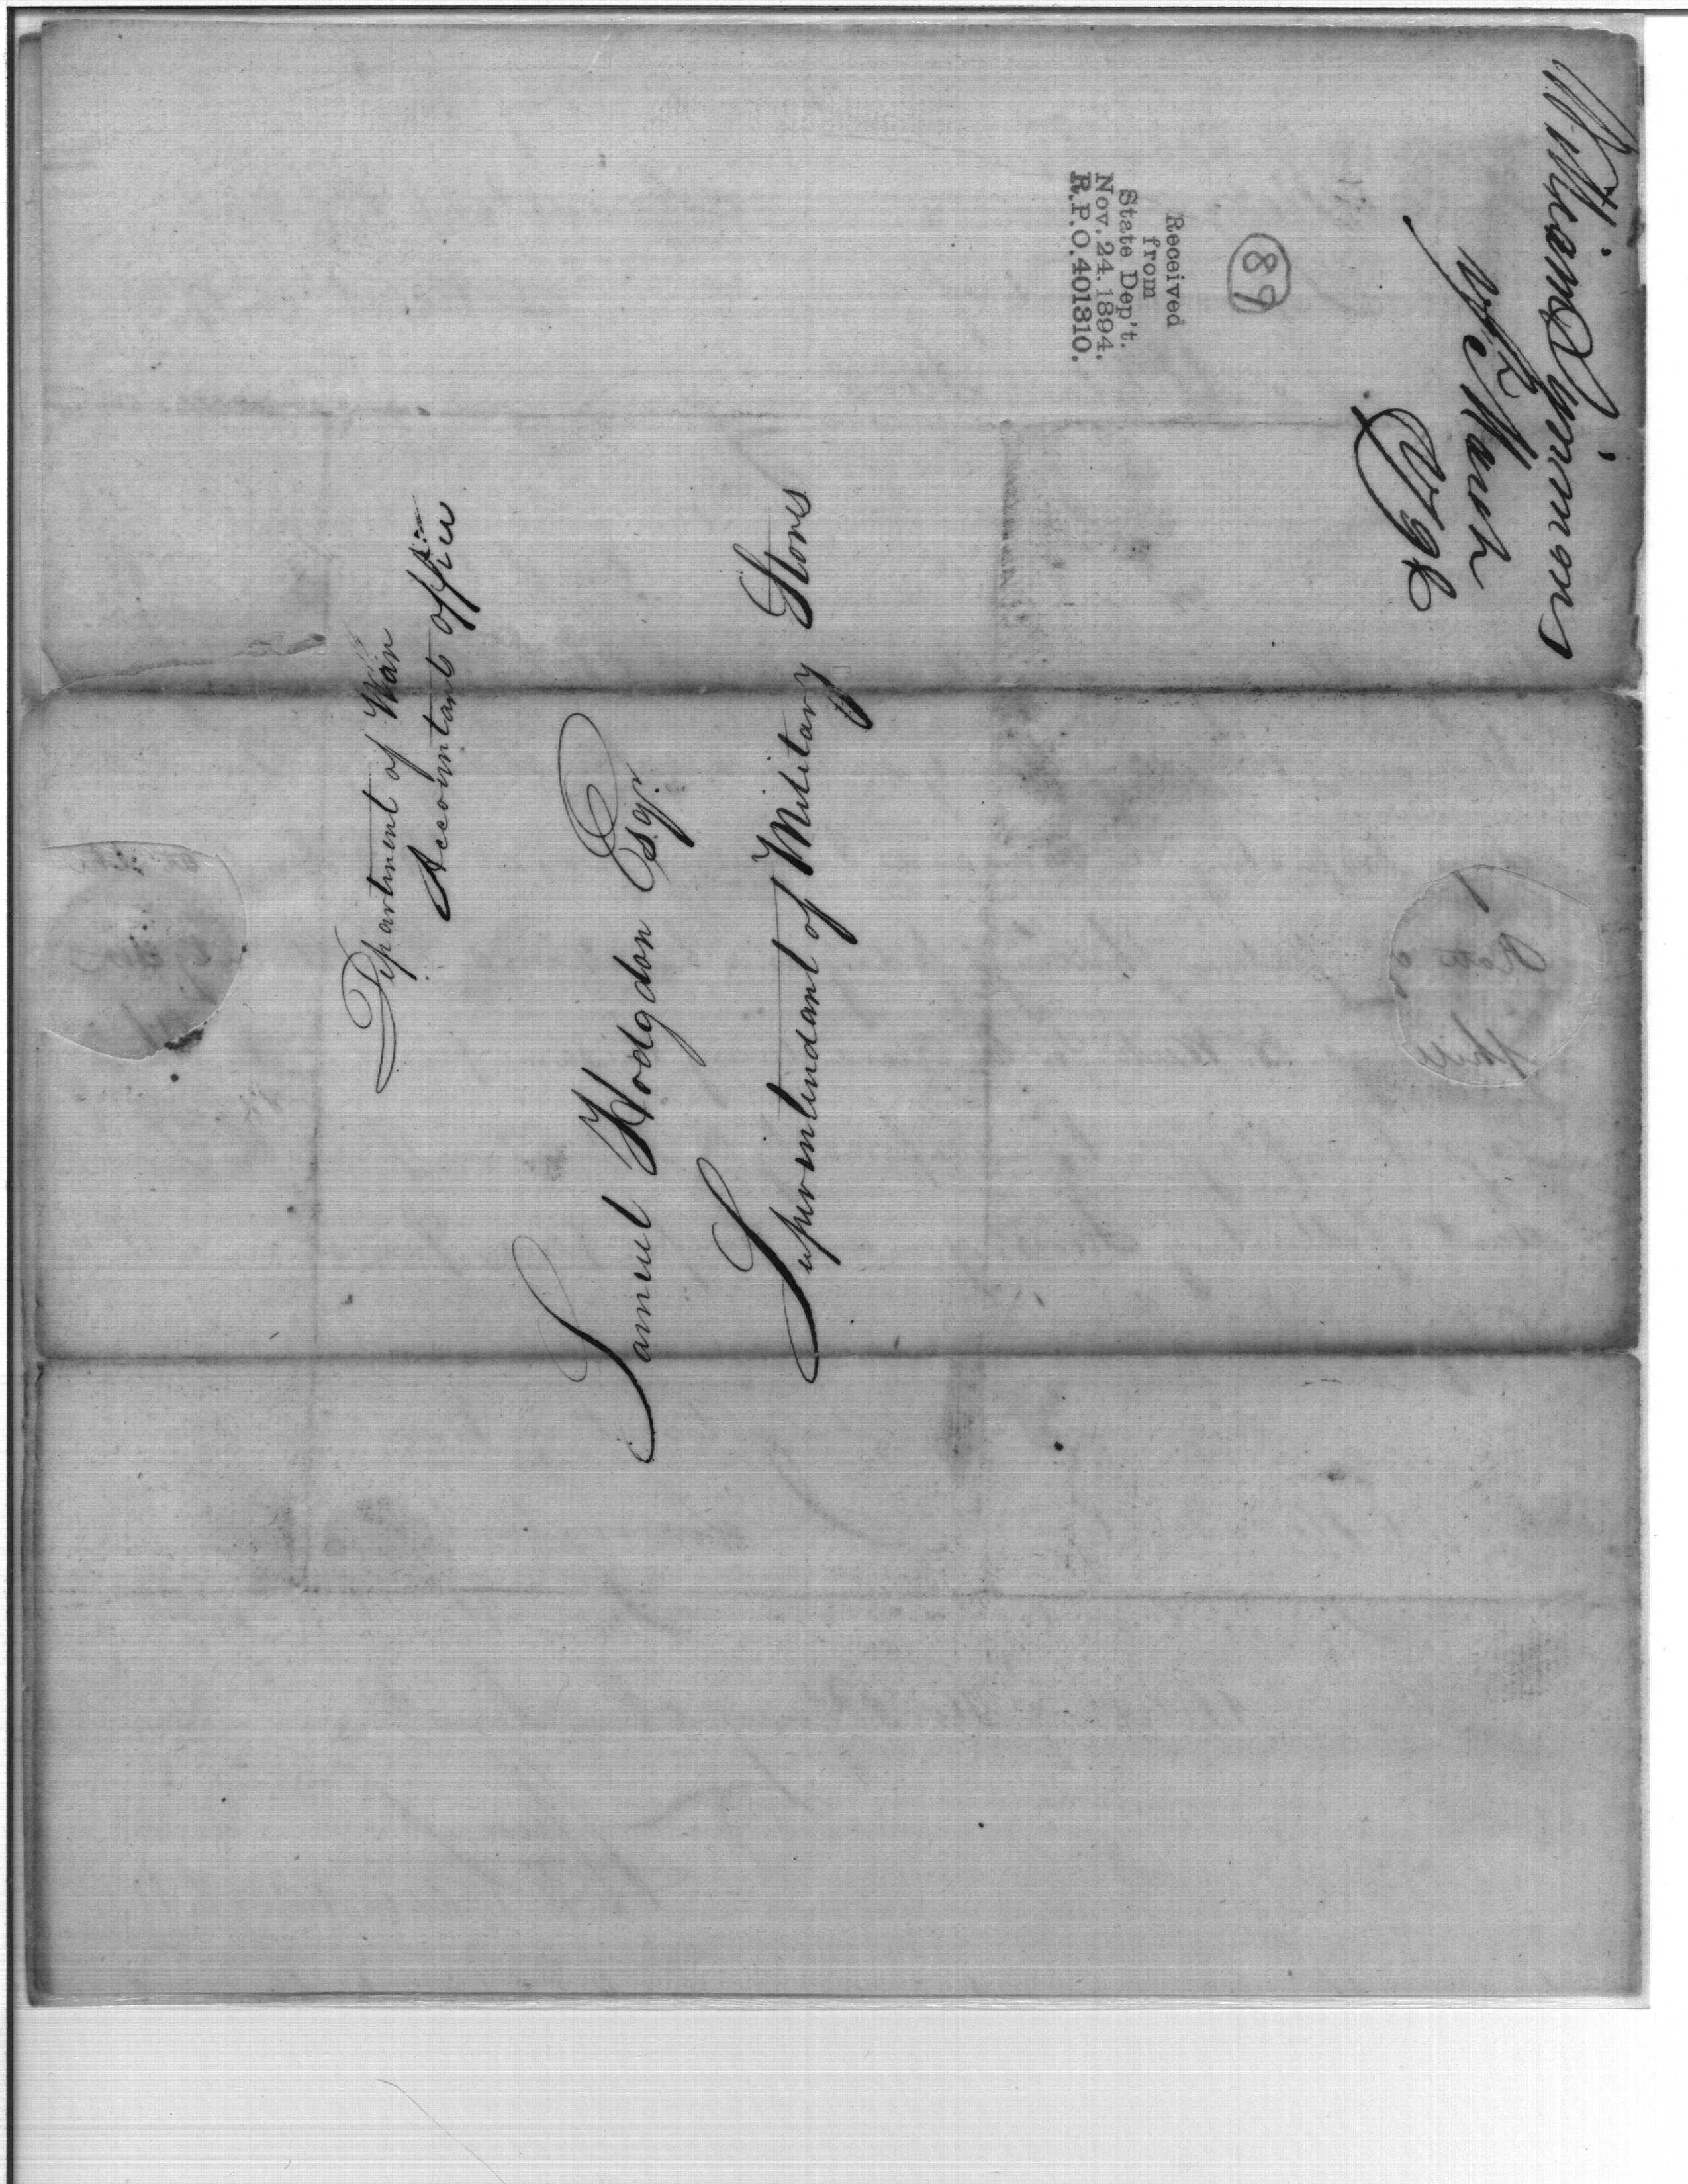 Department of War
Accountants office
Samuel Hodgdon Esqr.
Superintendant of Military Stores
William Simmons
March
89
Received
from
State Dep't.
Nov. 24. 1894.
R.P.O. 401310.